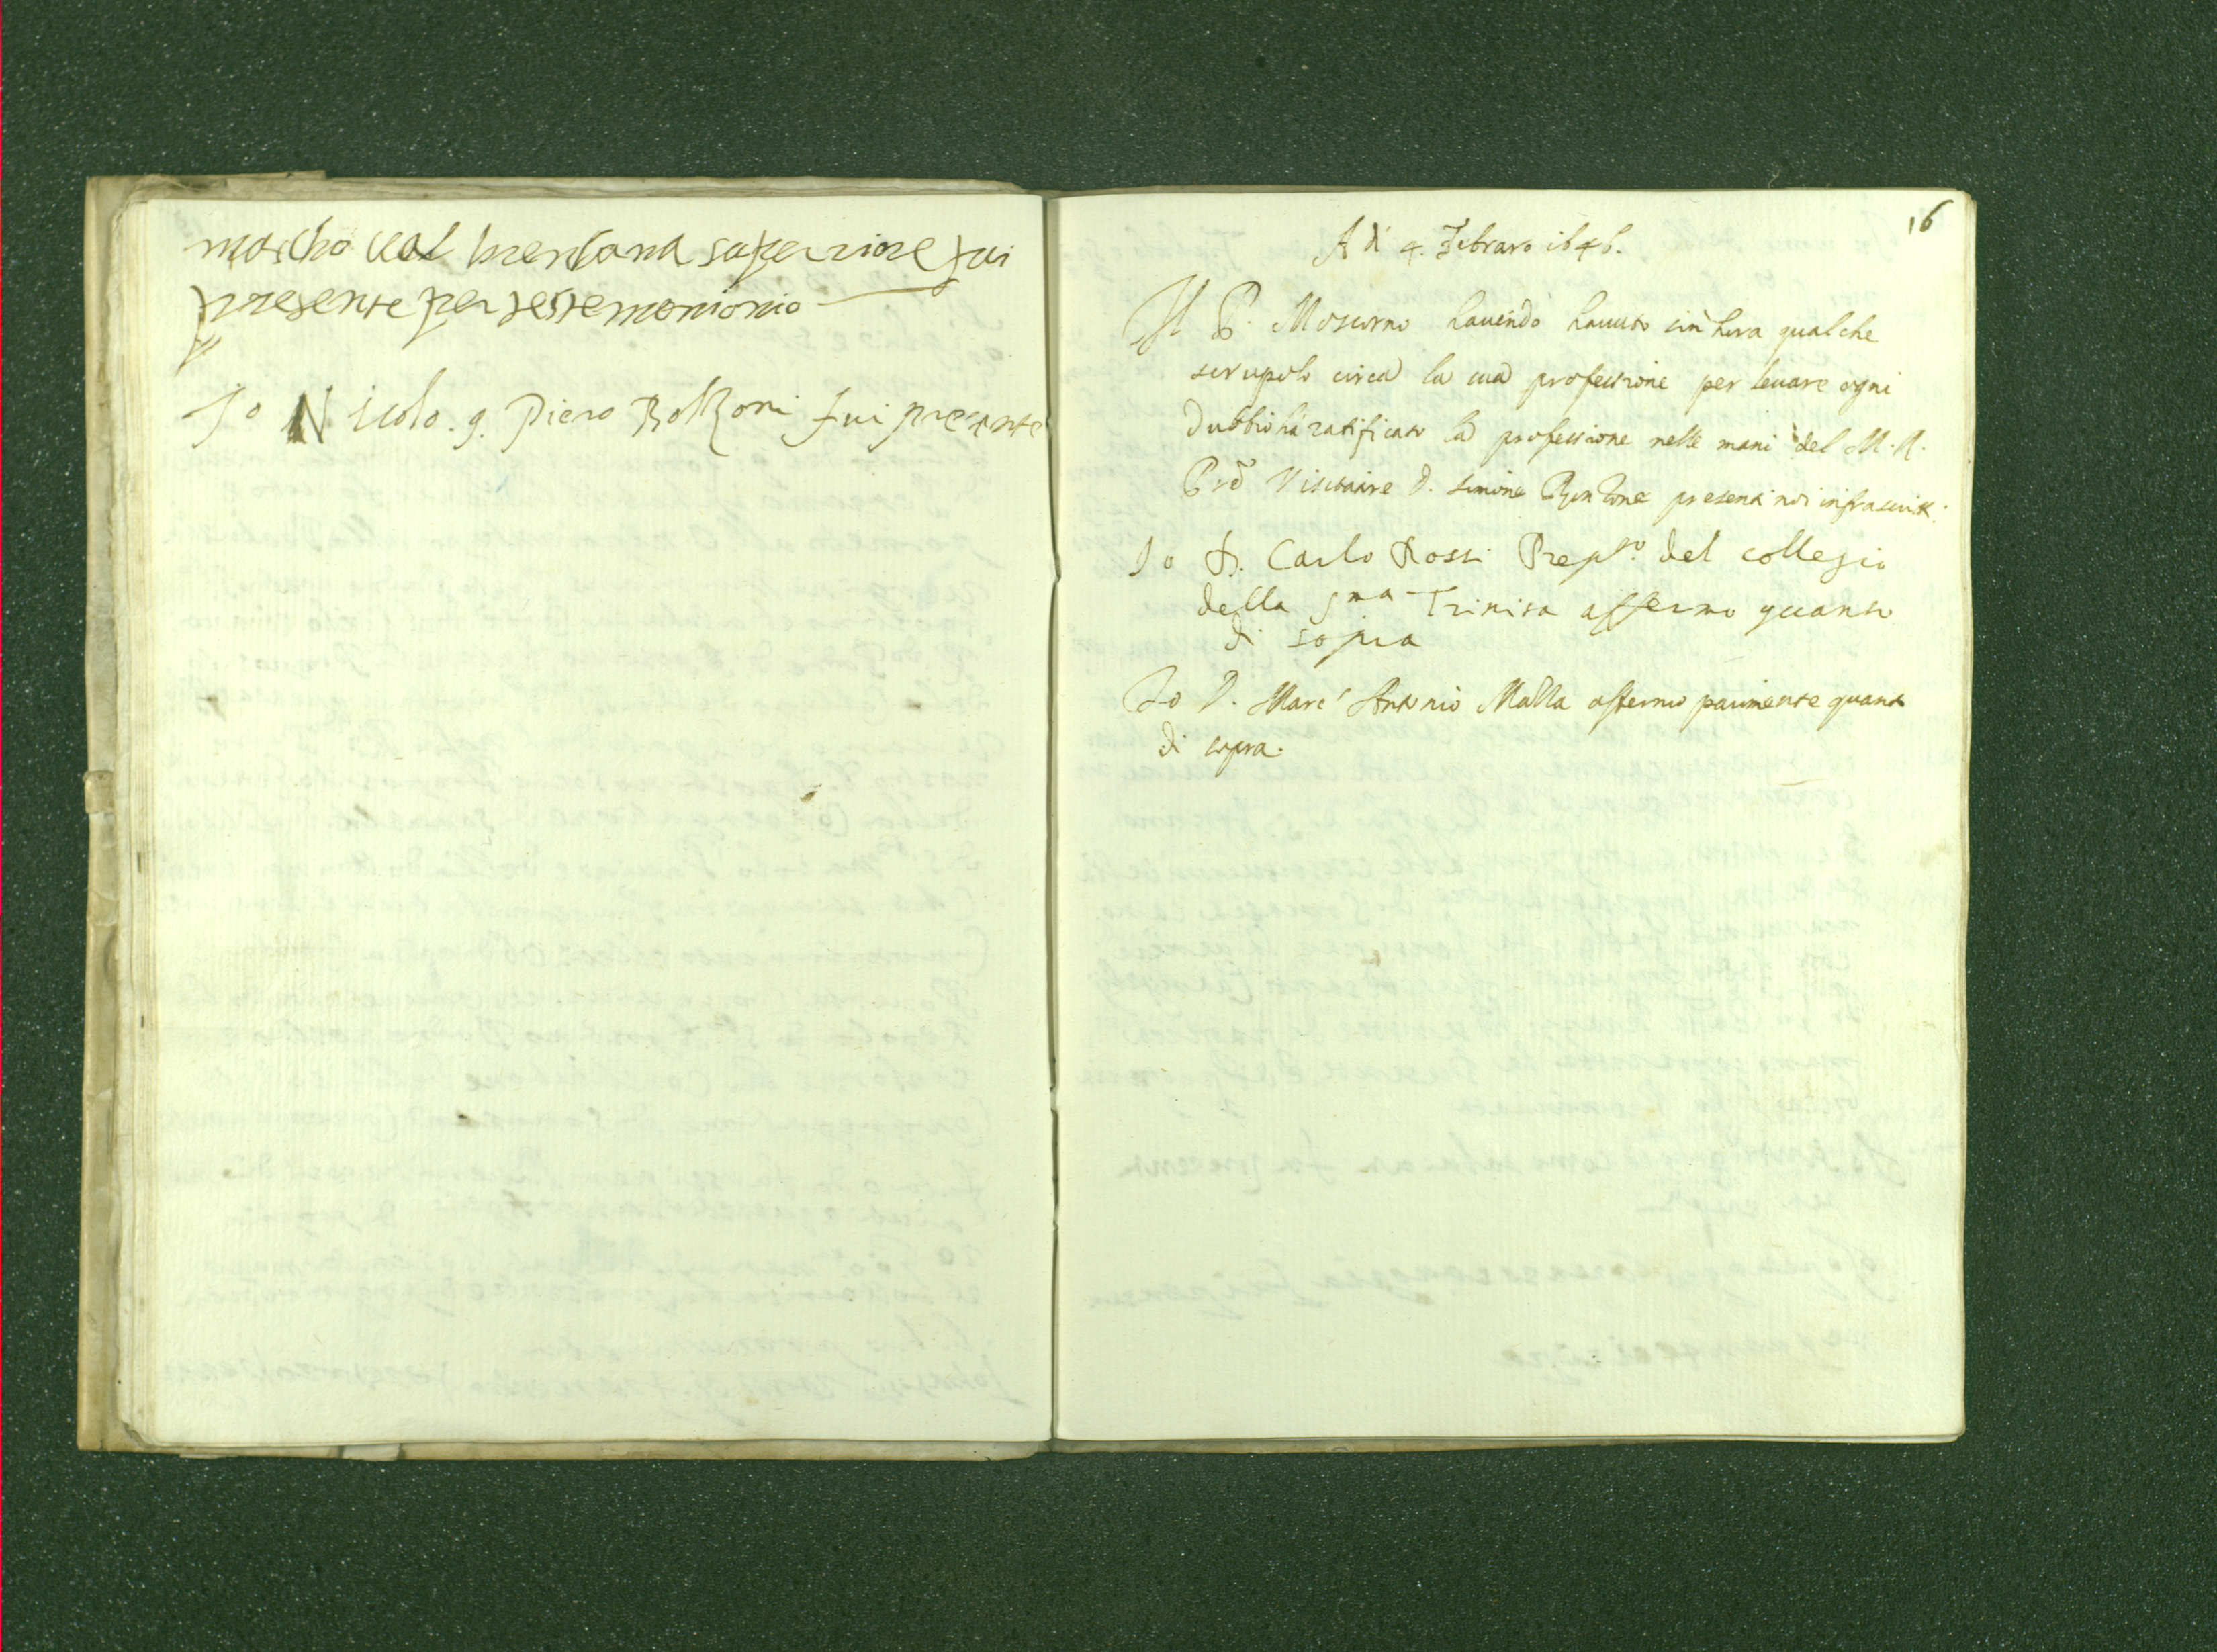 marcho val brenbana superiore fui
presente per testemonionio
Io Nicolo. q. Piero Bolzoni fui presente
16
A dì 4. Febraro 1646.
Il P. Moscorno hauendo hauuto sin hora qualche
scrupolo circa la sua professione per leuare ogni
dubbio hà ratificato la professione nelle mani del M. R.
Pre Visitatore D. Simone presenti noi infrascritti.
Io D. Carlo Rossi Prepto. del collegio
della Sma Trinita affermo quanto
di sopra
Io D. Marc' Antonio Malla affermo parimente quanto
di sopra.